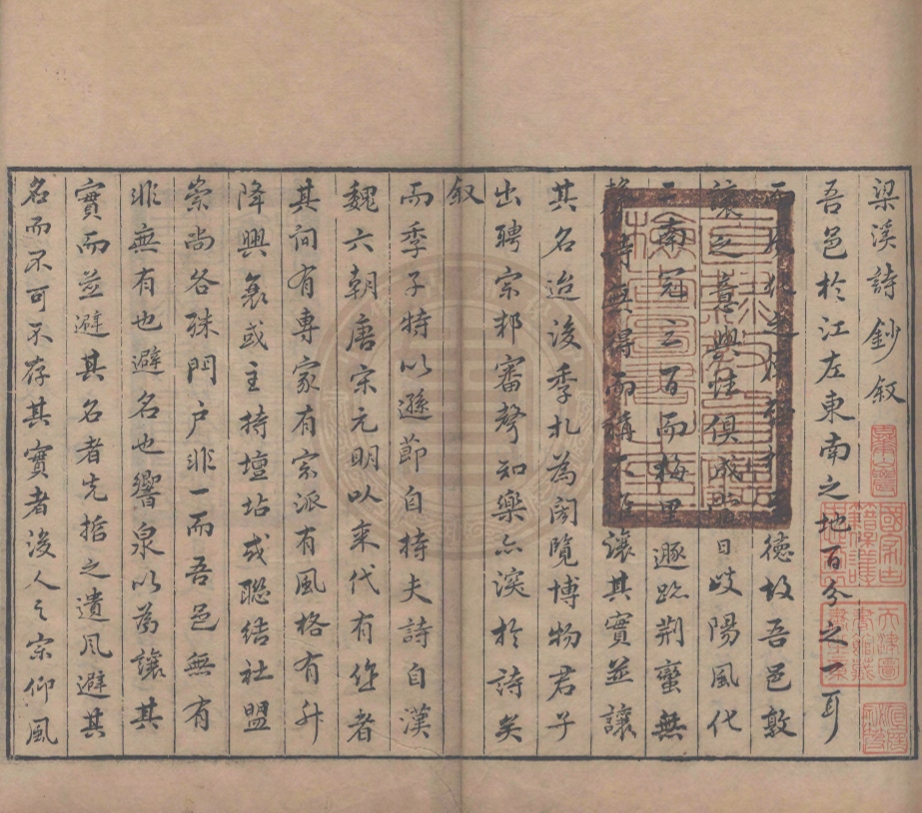 梁溪詩鈔叙
吾邑於江左東南之地百分之一耳
德故吾邑敦
讓之 興性俱成 日岐陽風代
二南冠三百而梅里遯跡荆蠻無
得而稱 讓其實並讓
其名迨後季札為閎覽博物君子
出聘宗邦審聲知樂亦深於詩矣
叙
而季子特以遜節自持夫詩自漢
魏六朝唐宋元明以来代有作者
其间有専家有宗派有風格有升
降興衰或主持壇坫或聯結社盟
崇尚各殊門户非一而吾邑無有
非無有也避名也響泉以為讓其
實而並避其名者先哲之遺風避其
名而不可不存其實者後人之宗仰風